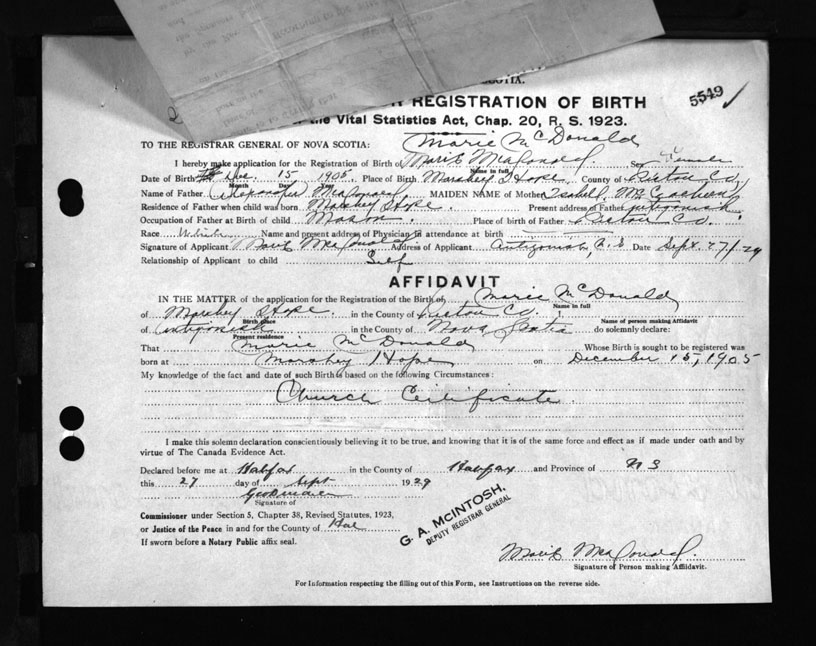 SCOTIA.
REGISTRATION OF BIRTH
5549
the Vital Statistics Act, Chap. 20, R. S. 1923.
TO THE REGISTRAR GENERAL OF NOVA SCOTIA: Marie McDonald
I hereby make application for the Registration of Birth of Marie McDonald Sex Female
Name in full
Date of Birth Dec. 15, 1905 Place of Birth Marshey Hope County of Pictou Co.
Month Day Year
Name of Father McDonald MAIDEN NAME of Mother Isabell
Residence of Father when child was born Marshey Hope. Present address of Father Antigonish
Occupation of Father at Birth of child Mason. Place of birth of Father Pictou Co.
Race White Name and present address of Physician in attendance at birth
Signature of Applicant Marie MacDonald Address of Applicant Antigonish, N. S Date Sept. 27/29
Relationship of Applicant to child Self
AFFIDAVIT
IN THE MATTER of the application for the Registration of the Birth of Marie McDonald
Name in full
of Marshey Hope. in the County of Pictou Co.
Birth place Name of person making Affidavit
of Antigonish in the County of Nova Scotia do solemnly declare:
Present residence
That Marie McDonald Whose Birth is sought to be registered was
born at Marshey Hope on December 15, 1905
My knowledge of the fact and date of such Birth is based on the following Circumstances:
Church Certificate.
I make this solemn declaration conscientiously believing it to be true, and knowing that it is of the same force and effect as if made under oath and by
virtue of The Canada Evidence Act.
Declared before me at Halifax in the County of Halifax and Province of N S
this 27 day of Sept 1929
Signature of
Commissioner under Section 5, Chapter 38, Revised Statutes, 1923,
or Justice of the Peace in and for the County of Hal
If sworn before a Notary Public affix seal.
G. A. McINTOSH,
DEPUTY REGISTRAR GENERAL
Marie MacDonald.
Signature of Person making Affidavit.
For Information respecting the filling out of this Form, see Instructions on the reverse side.